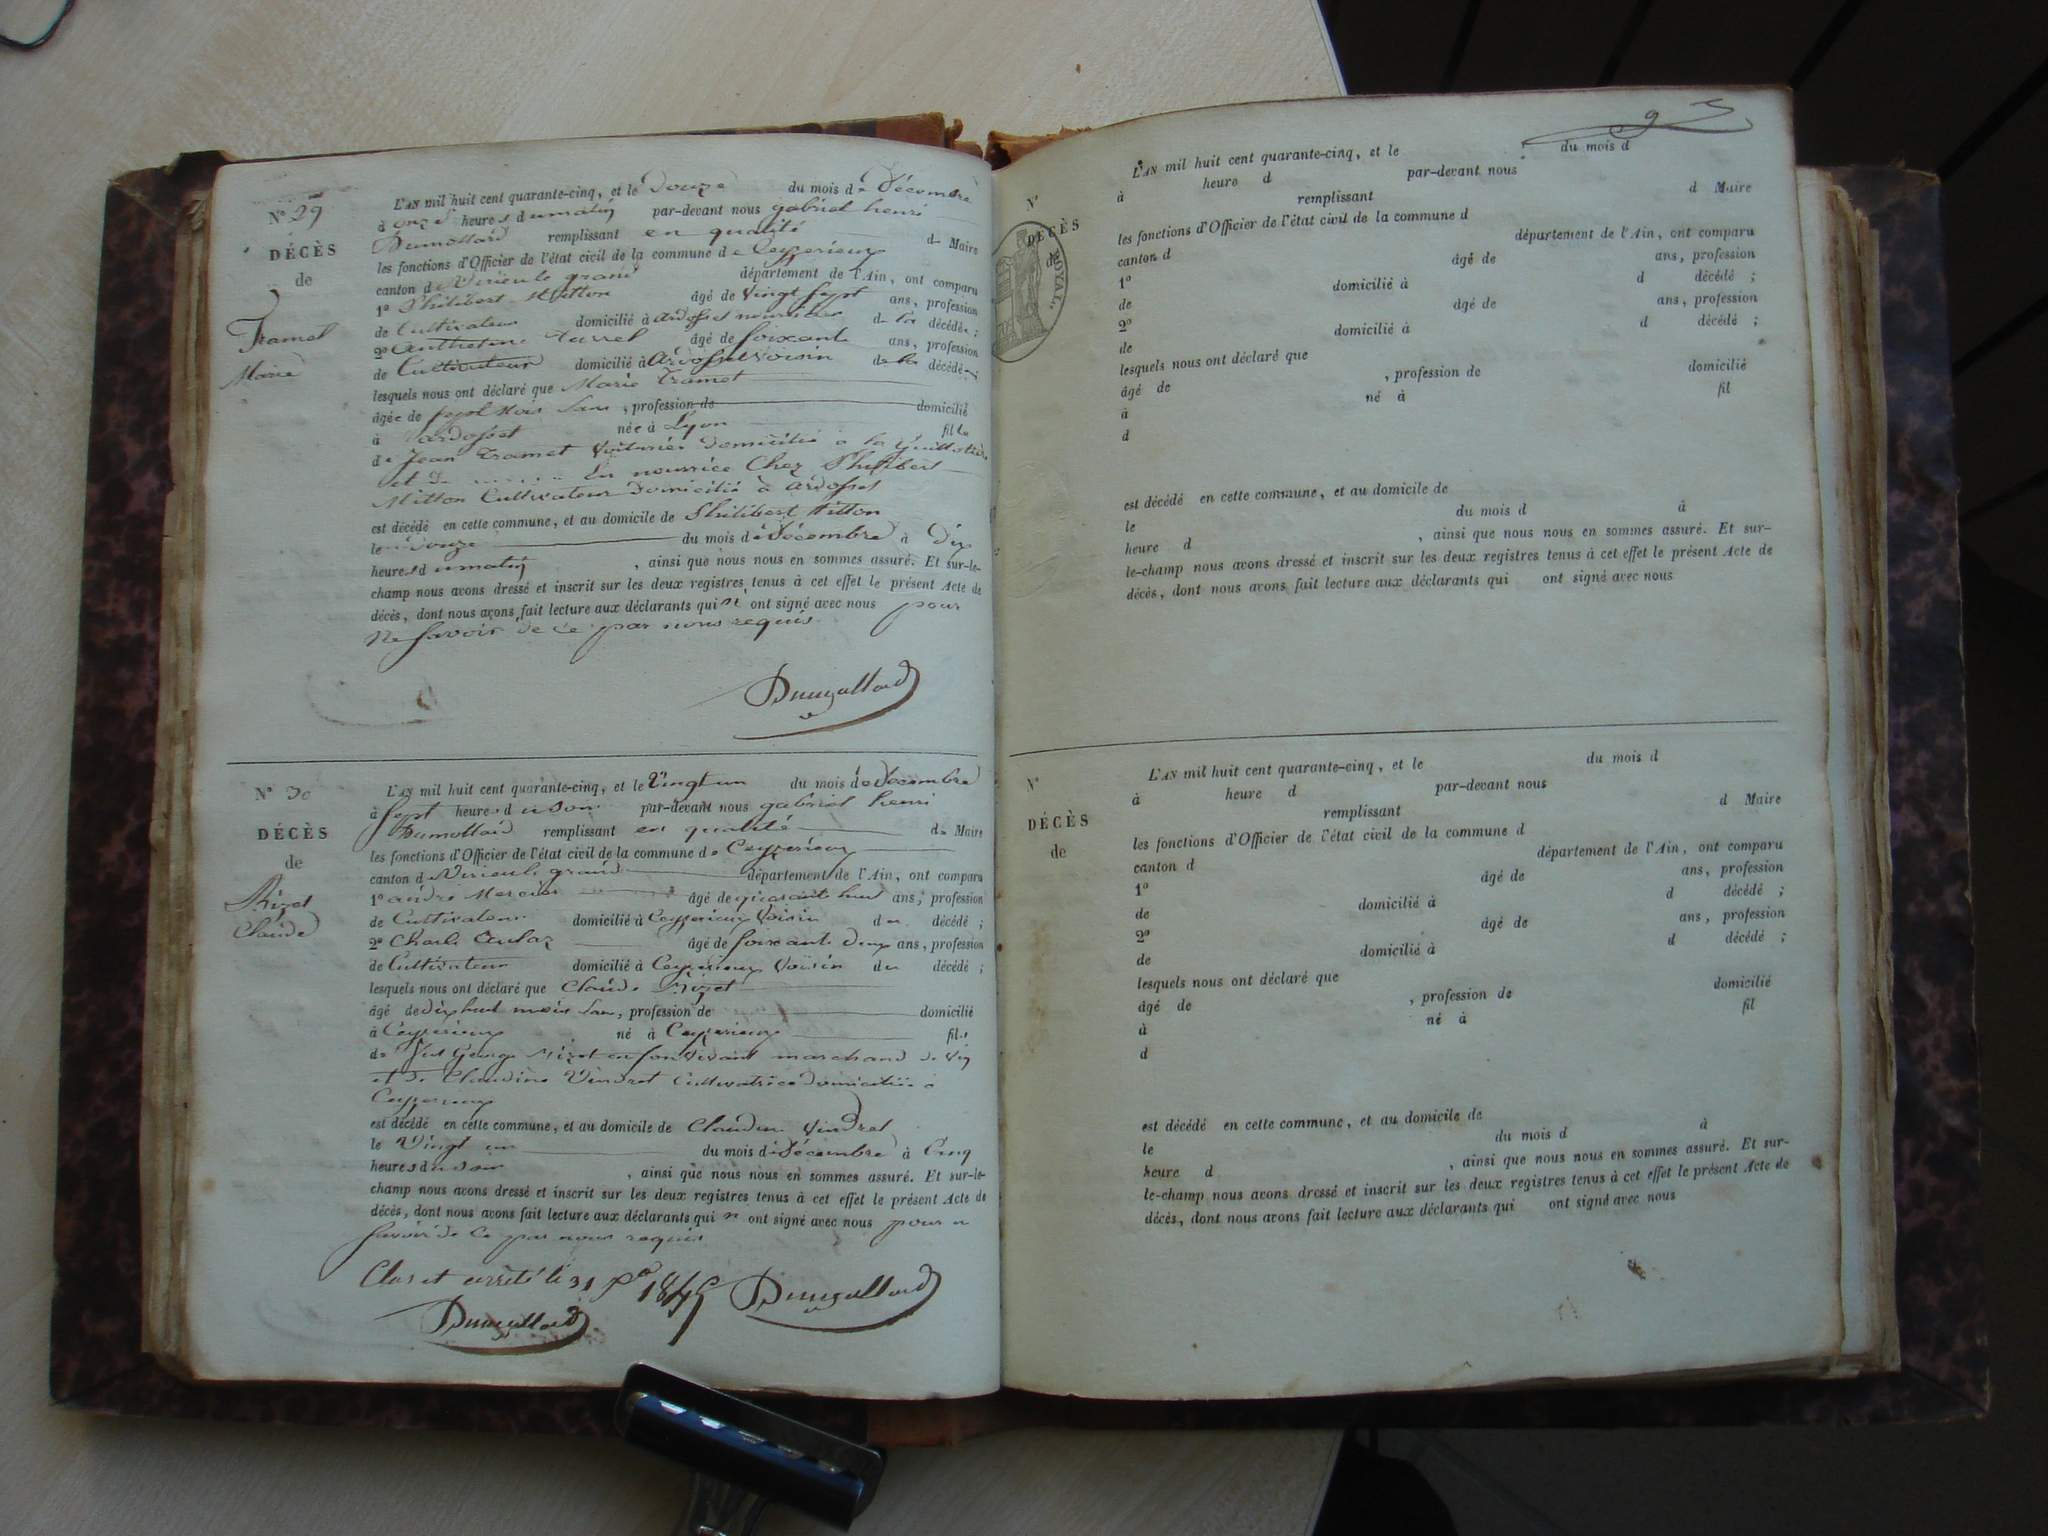 N° 29
DÉCÈS
de
Tramet
Marie
L'AN mil huit cent quarante-cinq, et le Douze du mois de Décembre
à onze heures du matin par-devant nous gabriel henri
Dumollard remplissant en qualité de Maire
les fonctions d'Officier de l'état civil de la commune de Ceyzerieux
canton de Virieu le grand département de l'Ain, ont comparu
1° Philibert Mitton âgé de vingt sept ans, profession
de Cultivateur domicilié à ardosset nourricier de la décédée ;
2° Anthelme âgé de soixante ans, profession
de Cultivateur domicilié à Ardosset voisin de la décédée ;
lesquels nous ont déclaré que Marie Tramet
âgée de sept Mois sans , profession de domicilié
à ardosset née à Lyon fille
de Jean Tramet Voiturier domicilié a la Guillotière
et de ........ En nourrice Chez Philibert
Mitton Cultivateur domicilié à ardosset
est décédé en cette commune, et au domicile de Philibert Mitton
le Douze du mois de Décembre à Dix
heures du matin , ainsi que nous nous en sommes assuré. Et sur-le-
champ nous avons dressé et inscrit sur les deux registres tenus à cet effet le présent Acte de
décès, dont nous avons fait lecture aux déclarants qui n' ont signé avec nous pour
Ne savoir de ce par nous requis
Dumollard
N° 30
DÉCÈS
de
Rizet
Claude
L'AN mil huit cent quarante-cinq, et le Vingt un du mois de Décembre
à sept heures du soir par-devant nous gabriel henri
Dumollard remplissant en qualité de Maire
les fonctions d'Officier de l'état civil de la commune de Ceyzerieux
canton de Virieu le grand département de l'Ain, ont comparu
1° andré Mercier âgé de quarante huit ans, profession
de Cultivateur domicilié à Ceyzerieux Voisin du décédé ;
2° Charles âgé de soixante deux ans, profession
de Cultivateur domicilié à Ceyzerieux Voisin du décédé ;
lesquels nous ont déclaré que Claude Rizet
âgé de dix huit mois sans, profession de domicilié
à Ceyzerieux né à Ceyzerieux fils
de George Rizet en son vivant marchand de vin
et de Claudine Vindret Cultivatrice domiciliée à
Ceyzerieux
est décédé en cette commune, et au domicile de Claudine Vindret
le Vingt un du mois de Décembre à Cinq
heures du soir , ainsi que nous nous en sommes assuré. Et sur-le-
champ nous avons dressé et inscrit sur les deux registres tenus à cet effet le présent Acte de
décès, dont nous avons fait lecture aux déclarants qui n' ont signé avec nous pour n
savoir de ce par nous requis
Clos et arrêté le 31 1845 Dumollard
Dumollard
9
L'AN mil huit cent quarante-cinq, et le du mois d
à heure d par-devant nous
remplissant d Maire
N°
DÉCÈS
de
ROYAL
les fonctions d'Officier de l'état civil de la commune d
canton d département de l'Ain, ont comparu
1° âgé de ans, profession
de domicilié à d décédé ;
2° âgé de ans, profession
de domicilié à d décédé ;
lesquels nous ont déclaré que
âgé de , profession de domicilié
à né à fil
d
est décédé en cette commune, et au domicile de
le du mois d à
heure d , ainsi que nous nous en sommes assuré. Et sur-
le-champ nous avons dressé et inscrit sur les deux registres tenus à cet effet le présent Acte de
décès, dont nous avons fait lecture aux déclarants qui ont signé avec nous
N°
DÉCÈS
de
L'AN mil huit cent quarante-cinq, et le du mois d
à heure d par-devant nous
remplissant d Maire
les fonctions d'Officier de l'état civil de la commune d
canton d département de l'Ain, ont comparu
1° âgé de ans, profession
de domicilié à d décédé ;
2° âgé de ans, profession
de domicilié à d décédé ;
lesquels nous ont déclaré que
âgé de , profession de domicilié
à né à fil
d
est décédé en cette commune, et au domicile de
le du mois d à
heure d , ainsi que nous nous en sommes assuré. Et sur-
le-champ nous avons dressé et inscrit sur les deux registres tenus à cet effet le présent Acte de
décès, dont nous avons fait lecture aux déclarants qui ont signé avec nous